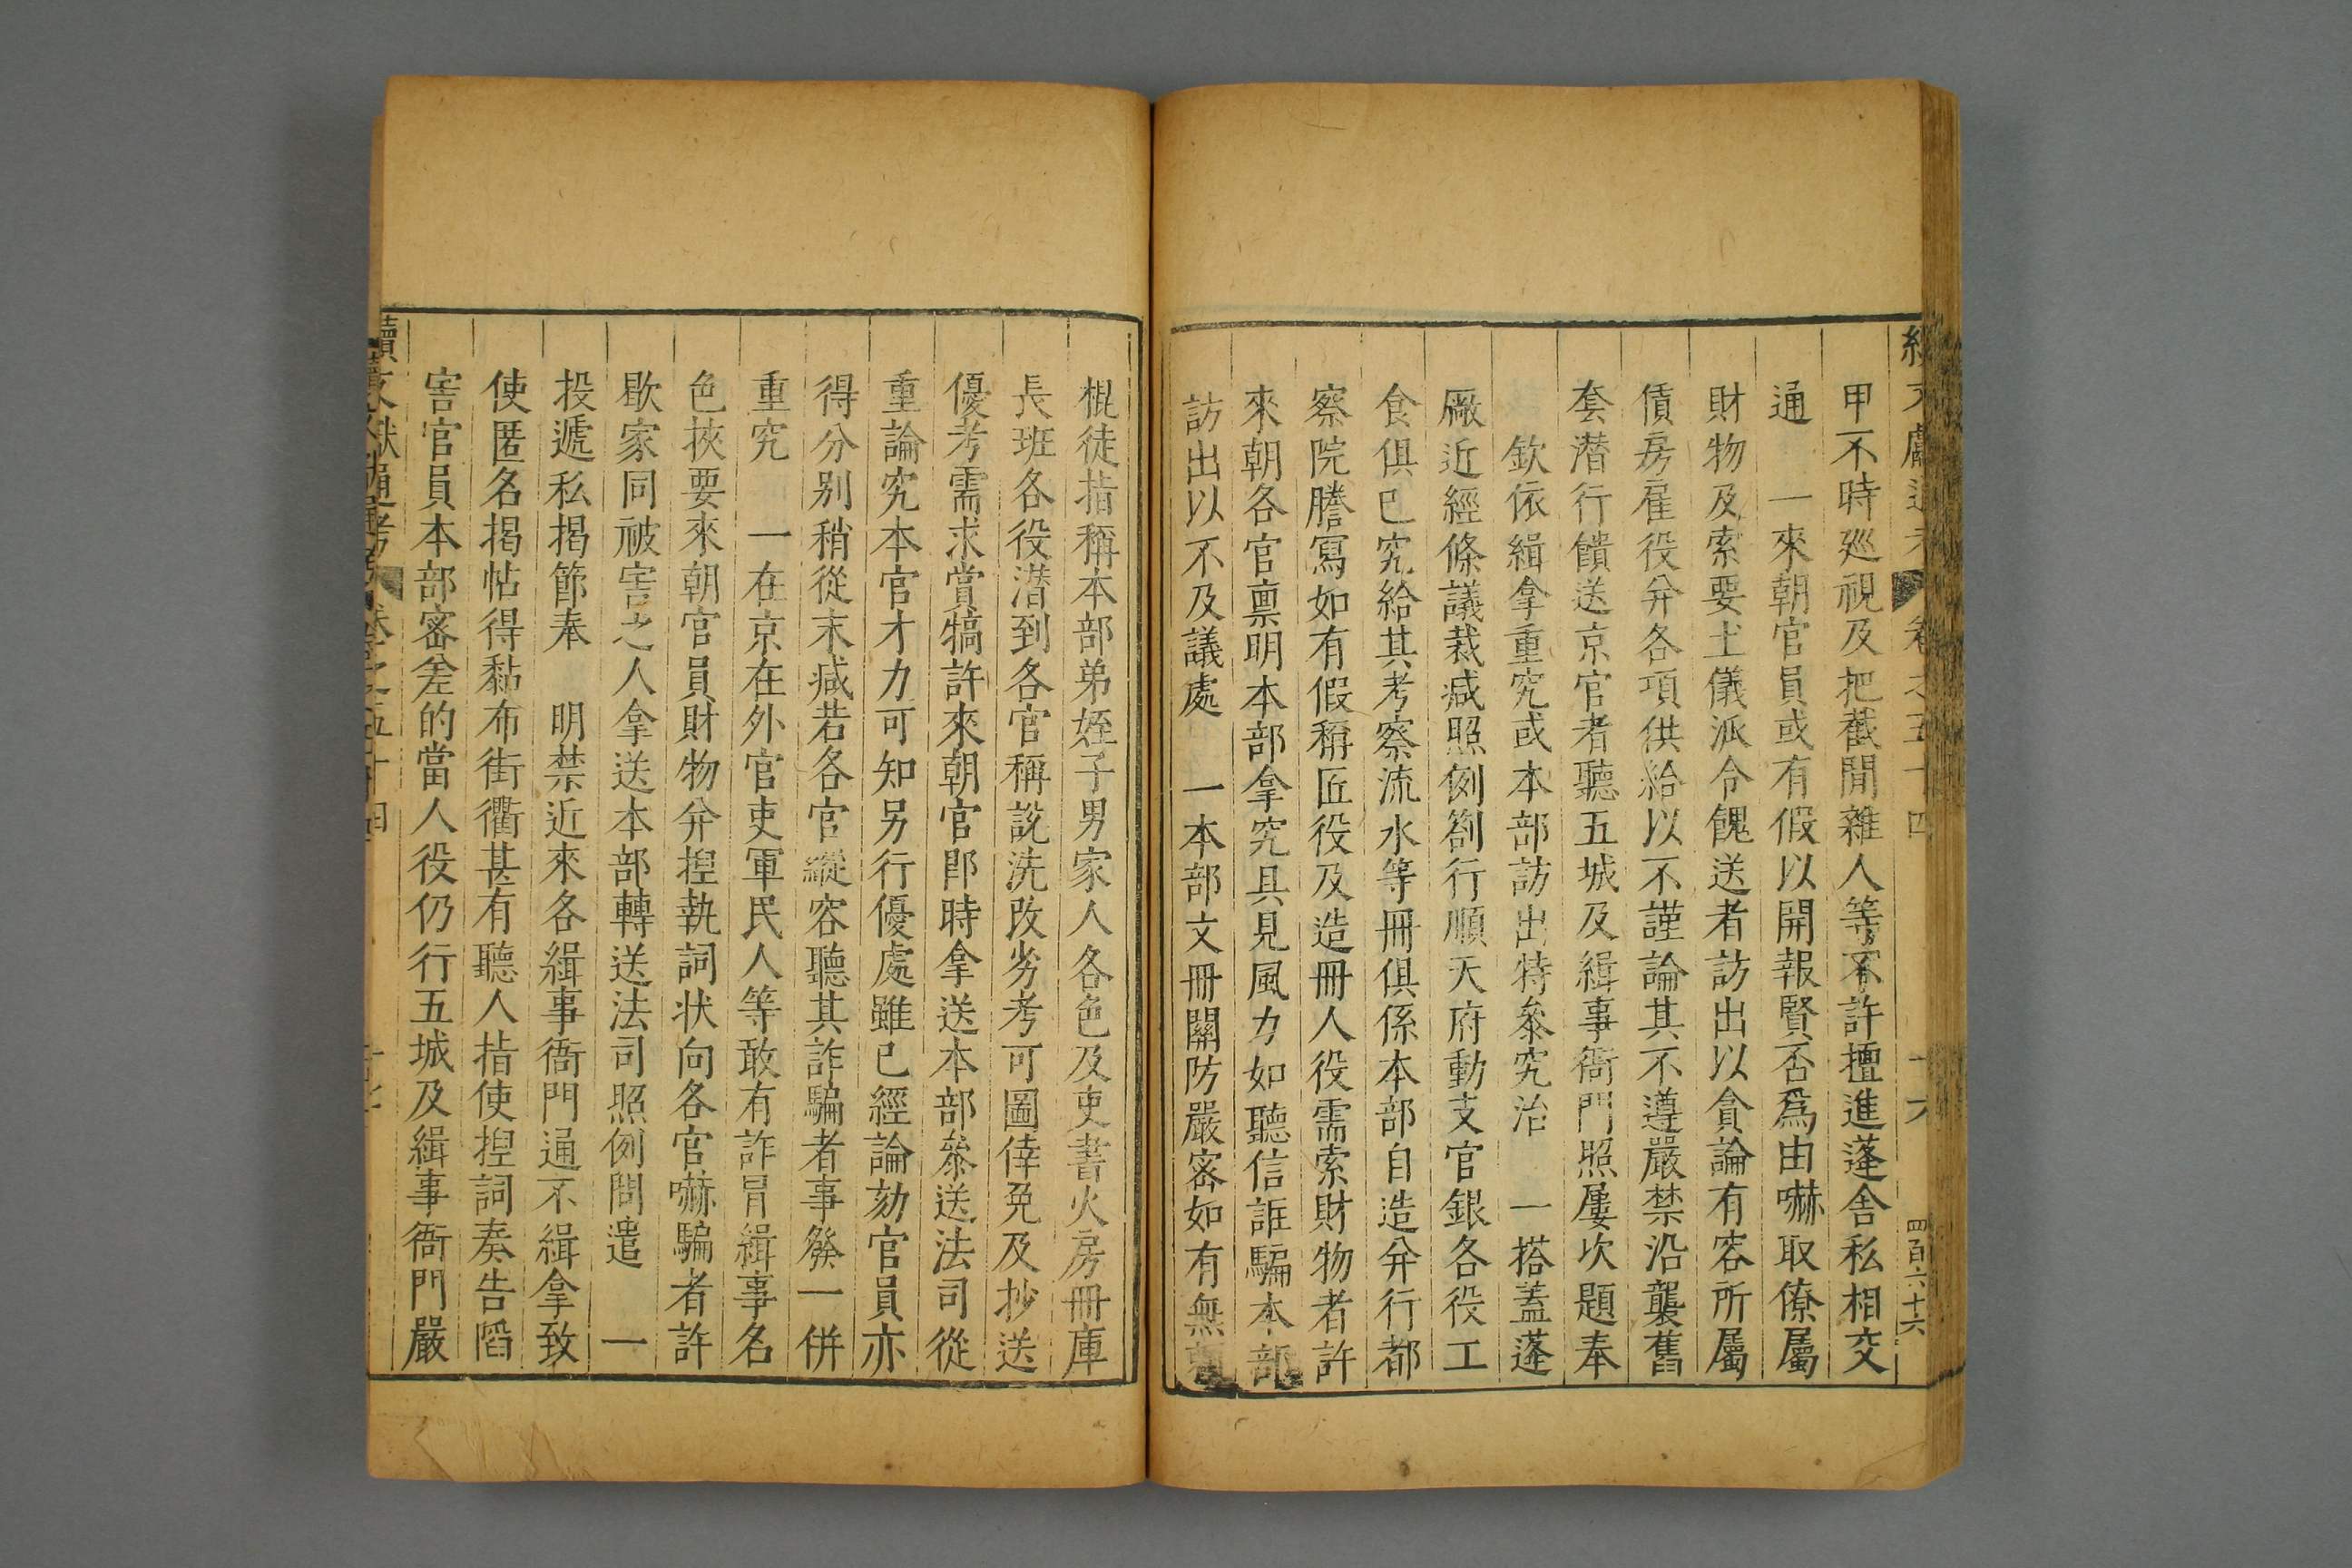 續文獻通考 卷之五十四 十六 四百六十六
甲不時廵視及把截閒雜人等不許擅進蓬舍私相交
通 一來朝官員或有假以開報賢否爲由嚇取僚屬
財物及索要土儀派令餽送者訪出以貪論有容所屬
債房雇役并各項供給以不謹論其不遵嚴禁沿襲舊
套潛行饋送京官者聽五城及緝事衙門照屢次題奉
欽依緝拿重究或本部訪出特叅究治 一搭蓋蓬
厰近經條議裁減照例劄行順天府動支官銀各役工
食俱已究給其考察流水等冊俱係本部自造并行都
察院謄寫如有假稱匠役及造冊人役需索財物者許
來朝各官禀明本部拿究具見風力如聽信誆騙本部
訪出以不及議處 一本部文冊關防嚴密如有無
棍徒指稱本部弟姪子男家人各色及吏書火房冊庫
長班各役潛到各官稱說洗改劣考可圖倖免及抄送
優考需求賞犒許來朝官即時拿送本部叅送法司從
重論究本官才力可知另行優處雖已經論劾官員亦
得分別稍從末減若各官縱容聽其詐騙者事發一併
重究 一在京在外官吏軍民人等敢有詐冐緝事名
色挾要來朝官員財物并揑執詞狀向各官嚇騙者許
歇家同被害之人拿送本部轉送法司照例問遣 一
投遞私揭節奉 明禁近來各緝事衙門通不緝拿致
使匿名揭帖得黏布街衢甚有聽人指使揑詞奏告䧟
害官員本部密差的當人役仍行五城及緝事衙門嚴
續文獻通考 卷之五十四 十七